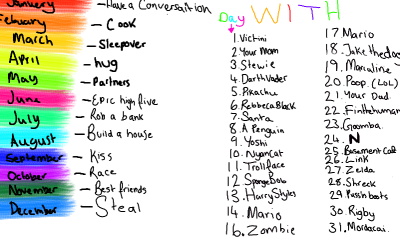 January — Have a Conversation
February — Cook
March — Sleepover
April — hug
May — Partners
June — Epic high five
July — Rob a bank
August — Build a house
September — Kiss
October — Race
November — Best friends
December — Steal
Day WITH
1. Victini
2. Your Mom
3. Stewie
4. Darth Vader
5. Pikachu
6. Rebbeca Black
7. Santa
8. A Penguin
9. Yoshi
10. Nyan Cat
11. Trollface
12 SpongeBob
13. Harry Styles
14. Mario
16. Zombie
17 Mario
18. Jake the dog
19. Marceline
20. Poop (LOL)
21. Your Dad
22. Finn the human
23. Goomba
24. N
25. Basement Cat
26. Link
27. Zelda
28. Shreck
29. Patrick
30. Rigby
31. Mordacai